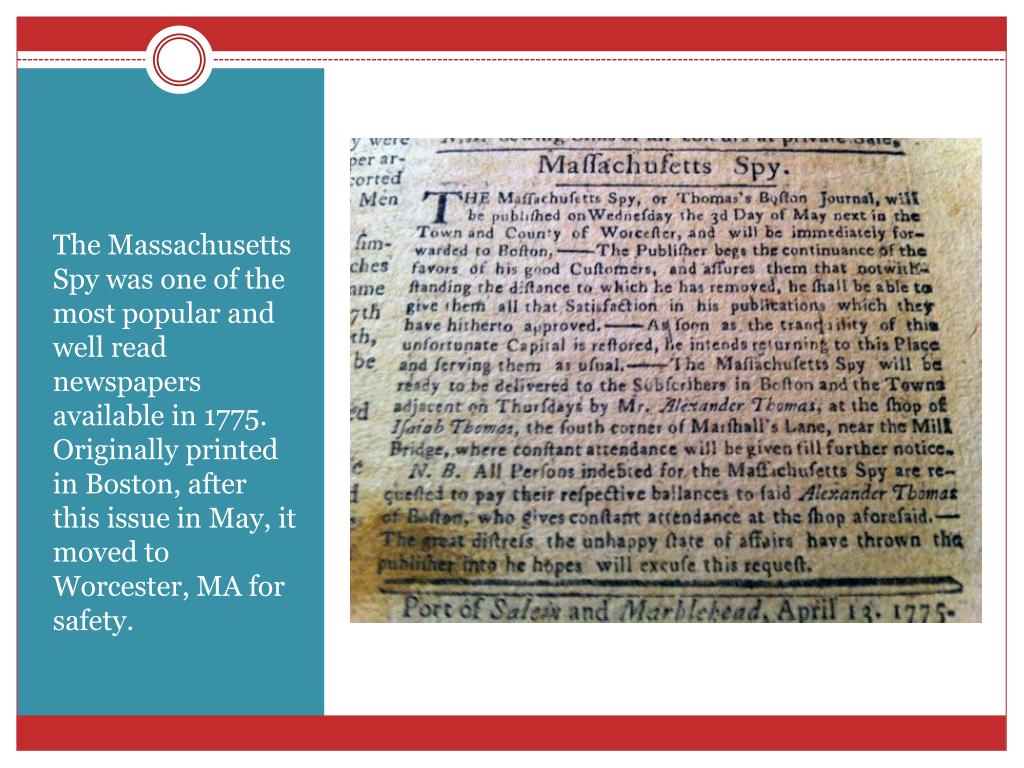 The Massachusetts
Spy was one of the
most popular and
well read
newspapers
available in 1775.
Originally printed
in Boston, after
this issue in May, it
moved to
Worcester, MA for
safety.
y were
per ar-
corted
Men
ſim-
ches
ame
7th
th,
be
at private Sale,
Maſſachuſetts Spy.
THE Maſſachuſetts Spy, or Thomas's Boſton Journal, will
be publiſhed on Wedneſday the 3d Day of May next in the
Town and County of Worceſter, and will be immediately for-
warded to Boſton,——The Publiſher begs the continuance of the
favors of his good Cuſtomers, and aſſures them that notwith-
ſtanding the diſtance to which he has removed, he ſhall be able to
give them all that Satisfaction in his publications which they
have hitherto approved.——As ſoon as the tranquility of this
unfortunate Capital is reſtored, he intends returning to this Place
and ſerving them as uſual.——The Maſſachuſetts Spy will be
ready to be delivered to the Subſcribers in Boſton and the Towns
adjacent on Thurſdays by Mr. Alexander Thomas, at the ſhop of
Iſaiah Thomas, the ſouth corner of Marſhall's Lane, near the Mill
Bridge, where conſtant attendance will be given till further notice.
N. B. All Perſons indebted for the Maſſachuſetts Spy are re-
queſted to pay their reſpective ballances to ſaid Alexander Thomas
of Boſton, who gives conſtant attendance at the ſhop aforeſaid.—
The great diſtreſs the unhappy ſtate of affairs have thrown the
publiſher into he hopes will excuſe this requeſt.
Port of Salem and Marblehead, April 13. 1775.